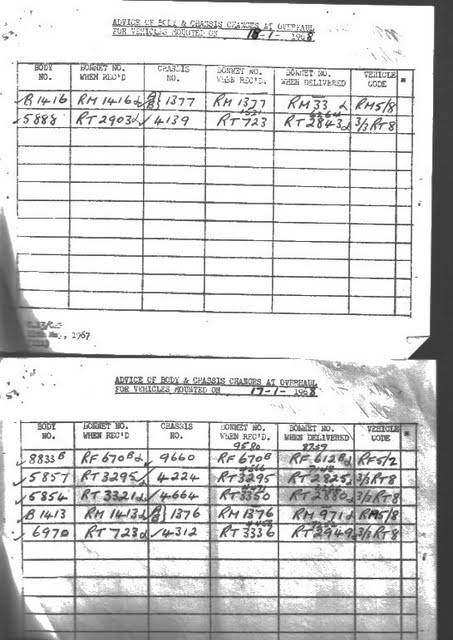 ADVICE OF BODY & CHASSIS CHANGES AT OVERHAUL
FOR VEHICLES MOUNTED ON 18-1-1968
BODY NO. BONNET NO. WHEN REC'D CHASSIS NO. BONNET NO. WHEN REC'D. BONNET NO. WHEN DELIVERED VEHICLE CODE
B1416 RM 1416 A B} 1377 RM 1377 RM 33 RM5/8
5888 RT 2903 4139 RT 723 RT 2843 3/3 RT8
May, 1967
ADVICE OF BODY & CHASSIS CHANGES AT OVERHAUL
FOR VEHICLES MOUNTED ON 17-1-1968
BODY NO. BONNET NO. WHEN REC'D CHASSIS NO. BONNET NO. WHEN REC'D. BONNET NO. WHEN DELIVERED VEHICLE CODE
9580 8759
8833B RF 670B 9660 RF 670B RF 612B RF5/2
5857 RT 3295 4224 RT 3295 RT 2825 3/3 RT8
5854 RT 3321 4664 RT 3350 RT 2880 3/3 RT8
B1413 RM 1413 A B} 1376 RM 1376 RM 971 RM5/8
6970 RT 723 4312 RT 3336 RT 2949 3/3 RT8